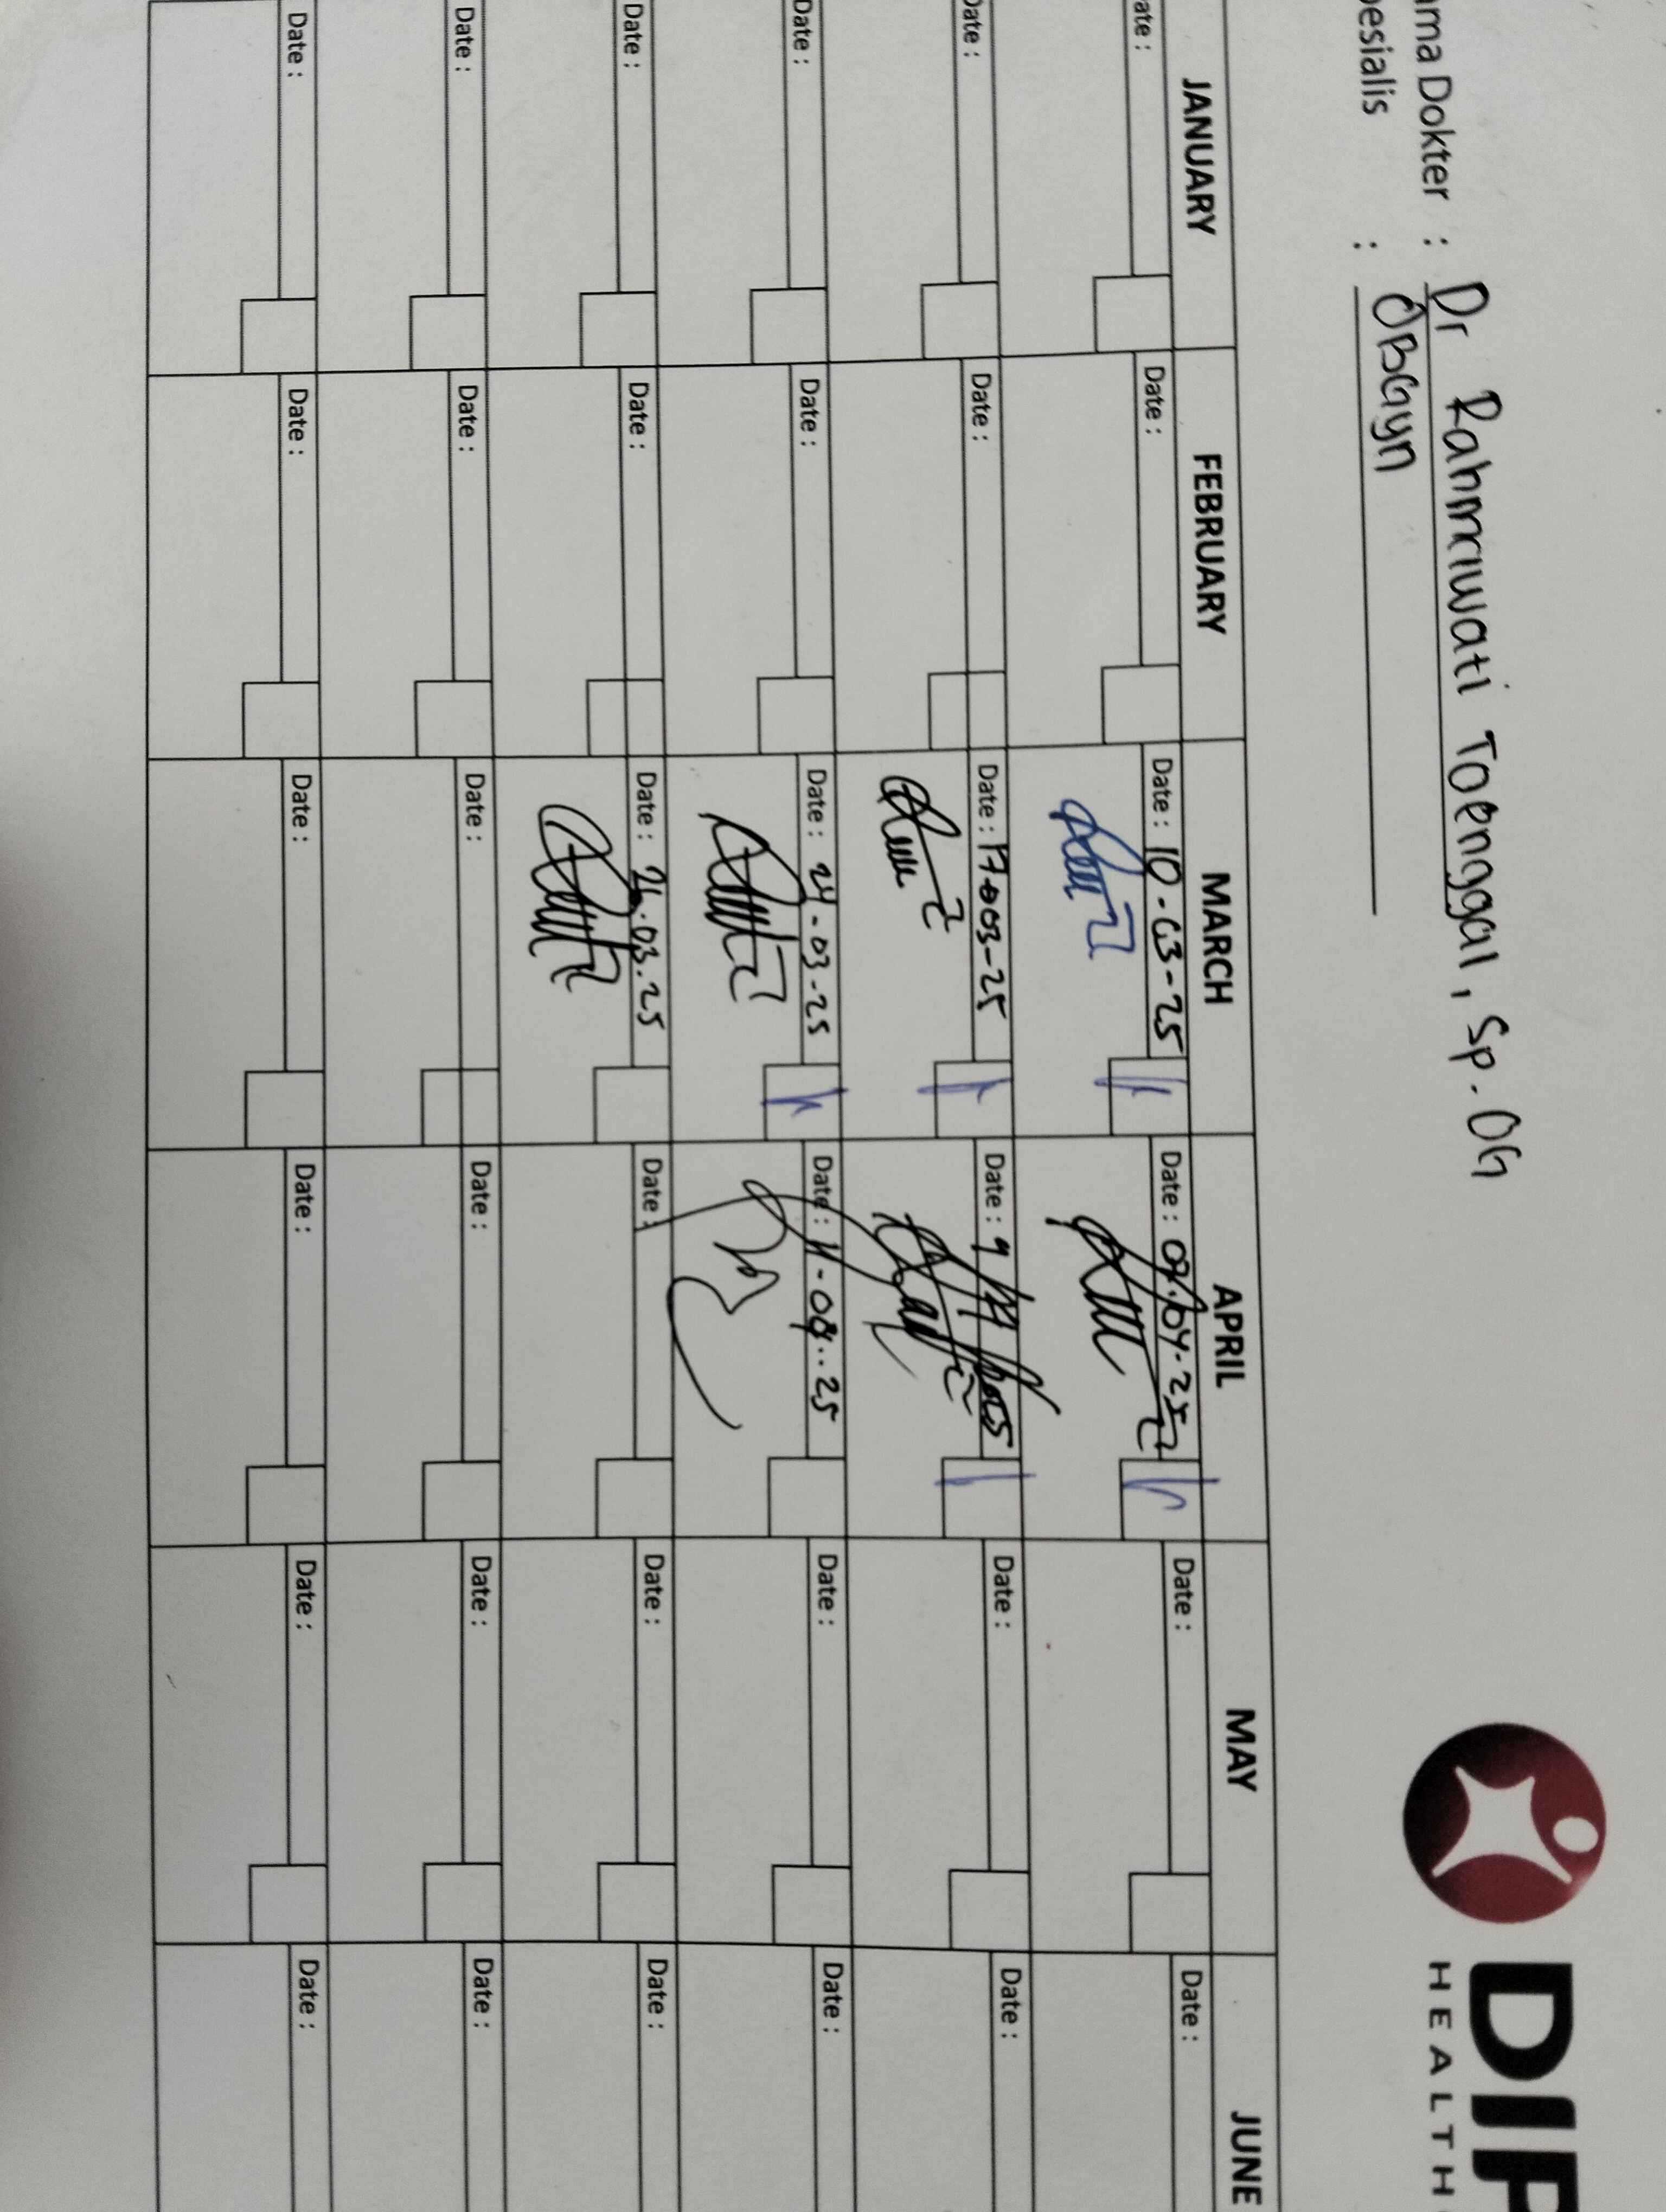 DIP
HEALTH
ama Dokter : Dr Rahmawati Toenggal, Sp.OG
pesialis : OBGyn
JANUARY FEBRUARY MARCH APRIL MAY JUNE
ate : Date : Date : 10-03-25 Date : 04-25 Date : Date :
Date : Date : Date : 17-03-25 Date : 9 Date : Date :
Date : Date : Date : 24-03-25 Date : 11-04..25 Date : Date :
Date : Date : Date : 26.03.25 Date : Date : Date :
Date : Date : Date : Date : Date : Date :
Date : Date : Date : Date : Date : Date :